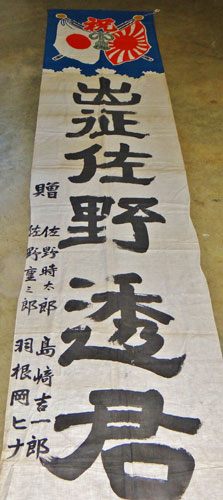 祝
出征佐野透君
贈
佐野時太郎
佐野重三郎
島﨑吉一郎
羽根岡ヒナ